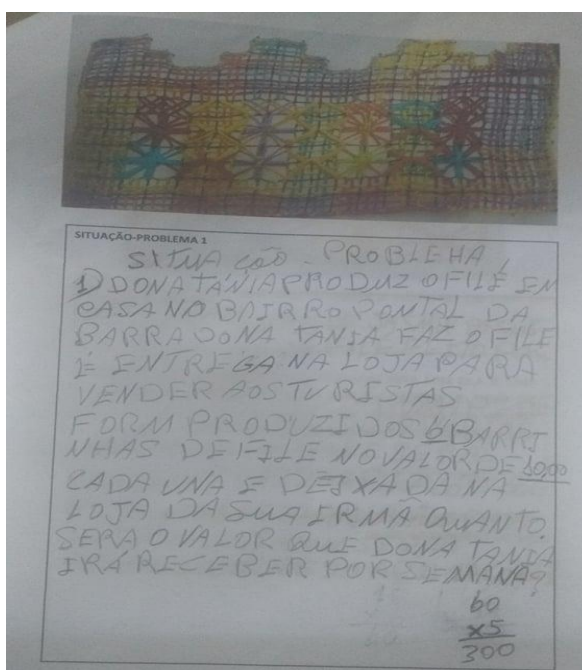 SITUAÇÃO-PROBLEMA 1
SITUA ÇÃO - PROBLEMA
1) DONA TÂNIA PRODUZ O FILÉ EM
CASA NO BAIRRO PONTAL DA
BARRA DONA TANIA FAZ O FILE
E ENTREGA NA LOJA PARA
VENDER AOS TURISTAS
FORM PRODUZIDOS 6 BARRI
NHAS DE FILE NO VALOR DE 10,00
CADA UNA E DEIXADA NA
LOJA DA SUA IRMÃ QUANTO
SERA O VALOR QUE DONA TANIA
IRÁ RECEBER POR SEMANA?
60
x5
300